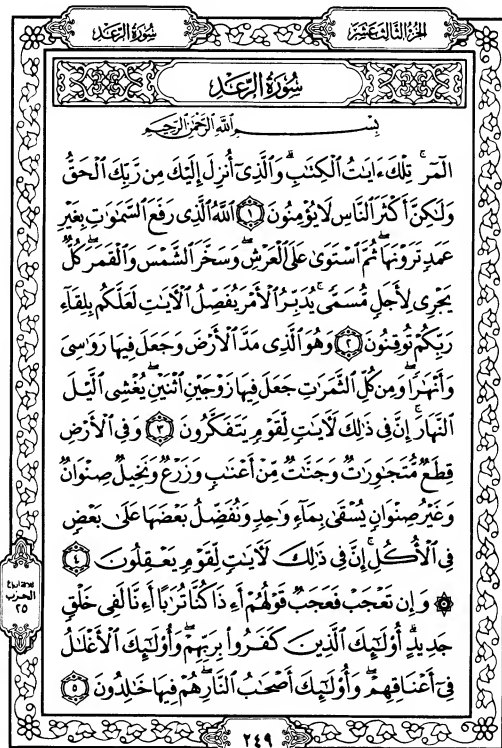 الجزء الثالث عشر
سورة الرعد
سورة الرعد
بسم الله الرحمن الرحيم
الٓمٓرۚ تِلْكَ ءَايَٰتُ ٱلْكِتَٰبِۗ وَٱلَّذِىٓ أُنزِلَ إِلَيْكَ مِن رَّبِّكَ ٱلْحَقُّ
وَلَٰكِنَّ أَكْثَرَ ٱلنَّاسِ لَا يُؤْمِنُونَ ١ ٱللَّهُ ٱلَّذِى رَفَعَ ٱلسَّمَٰوَٰتِ بِغَيْرِ
عَمَدٍ تَرَوْنَهَاۖ ثُمَّ ٱسْتَوَىٰ عَلَى ٱلْعَرْشِۖ وَسَخَّرَ ٱلشَّمْسَ وَٱلْقَمَرَۖ كُلٌّ
يَجْرِى لِأَجَلٍ مُّسَمًّىۚ يُدَبِّرُ ٱلْأَمْرَ يُفَصِّلُ ٱلْءَايَٰتِ لَعَلَّكُم بِلِقَآءِ
رَبِّكُمْ تُوقِنُونَ ٢ وَهُوَ ٱلَّذِى مَدَّ ٱلْأَرْضَ وَجَعَلَ فِيهَا رَوَٰسِىَ
وَأَنْهَٰرًاۖ وَمِن كُلِّ ٱلثَّمَرَٰتِ جَعَلَ فِيهَا زَوْجَيْنِ ٱثْنَيْنِۖ يُغْشِى ٱلَّيْلَ
ٱلنَّهَارَۚ إِنَّ فِى ذَٰلِكَ لَءَايَٰتٍ لِّقَوْمٍ يَتَفَكَّرُونَ ٣ وَفِى ٱلْأَرْضِ
قِطَعٌ مُّتَجَٰوِرَٰتٌ وَجَنَّٰتٌ مِّنْ أَعْنَٰبٍ وَزَرْعٌ وَنَخِيلٌ صِنْوَانٌ
وَغَيْرُ صِنْوَانٍ يُسْقَىٰ بِمَآءٍ وَٰحِدٍ وَنُفَضِّلُ بَعْضَهَا عَلَىٰ بَعْضٍ
فِى ٱلْأُكُلِۚ إِنَّ فِى ذَٰلِكَ لَءَايَٰتٍ لِّقَوْمٍ يَعْقِلُونَ ٤
۞ وَإِن تَعْجَبْ فَعَجَبٌ قَوْلُهُمْ أَءِذَا كُنَّا تُرَٰبًا أَءِنَّا لَفِى خَلْقٍ
جَدِيدٍۗ أُو۟لَٰٓئِكَ ٱلَّذِينَ كَفَرُوا۟ بِرَبِّهِمْۖ وَأُو۟لَٰٓئِكَ ٱلْأَغْلَٰلُ
فِىٓ أَعْنَاقِهِمْۖ وَأُو۟لَٰٓئِكَ أَصْحَٰبُ ٱلنَّارِۖ هُمْ فِيهَا خَٰلِدُونَ ٥
ثلاثة ارباع
الحزب
٢٥
٢٤٩